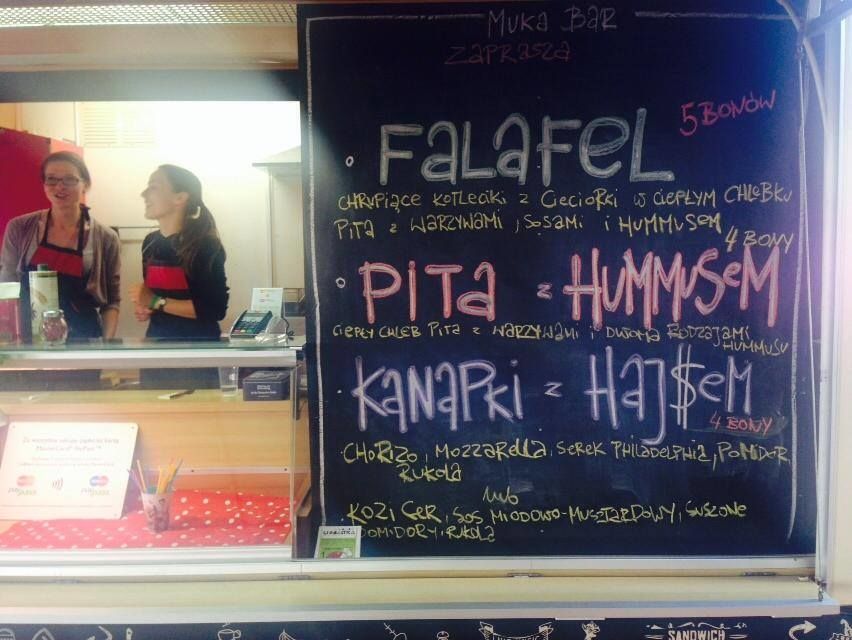 MUKA BAR
ZAPRASZA
5 BONÓW
FALAFEL
CHRUPIĄCE KOTLECIKI Z CIECIORKI W CIEPŁYM CHLEBKU
PITA Z WARZYWAMI, SOSAMI I HUMMUSEM
4 BONY
PITA Z HUMMUSEM
CIEPŁY CHLEB PITA Z WARZYWAMI I DWOMA RODZAJAMI
HUMMUSU
KANAPKI Z HAJ$EM
4 BONY
CHORIZO, MOZZARELLA, SEREK PHILADELPHIA, POMIDOR,
RUKOLA
LUB
KOZI SER, SOS MIODOWO-MUSZTARDOWY, SUSZONE
POMIDORY, RUKOLA
SANDWICH